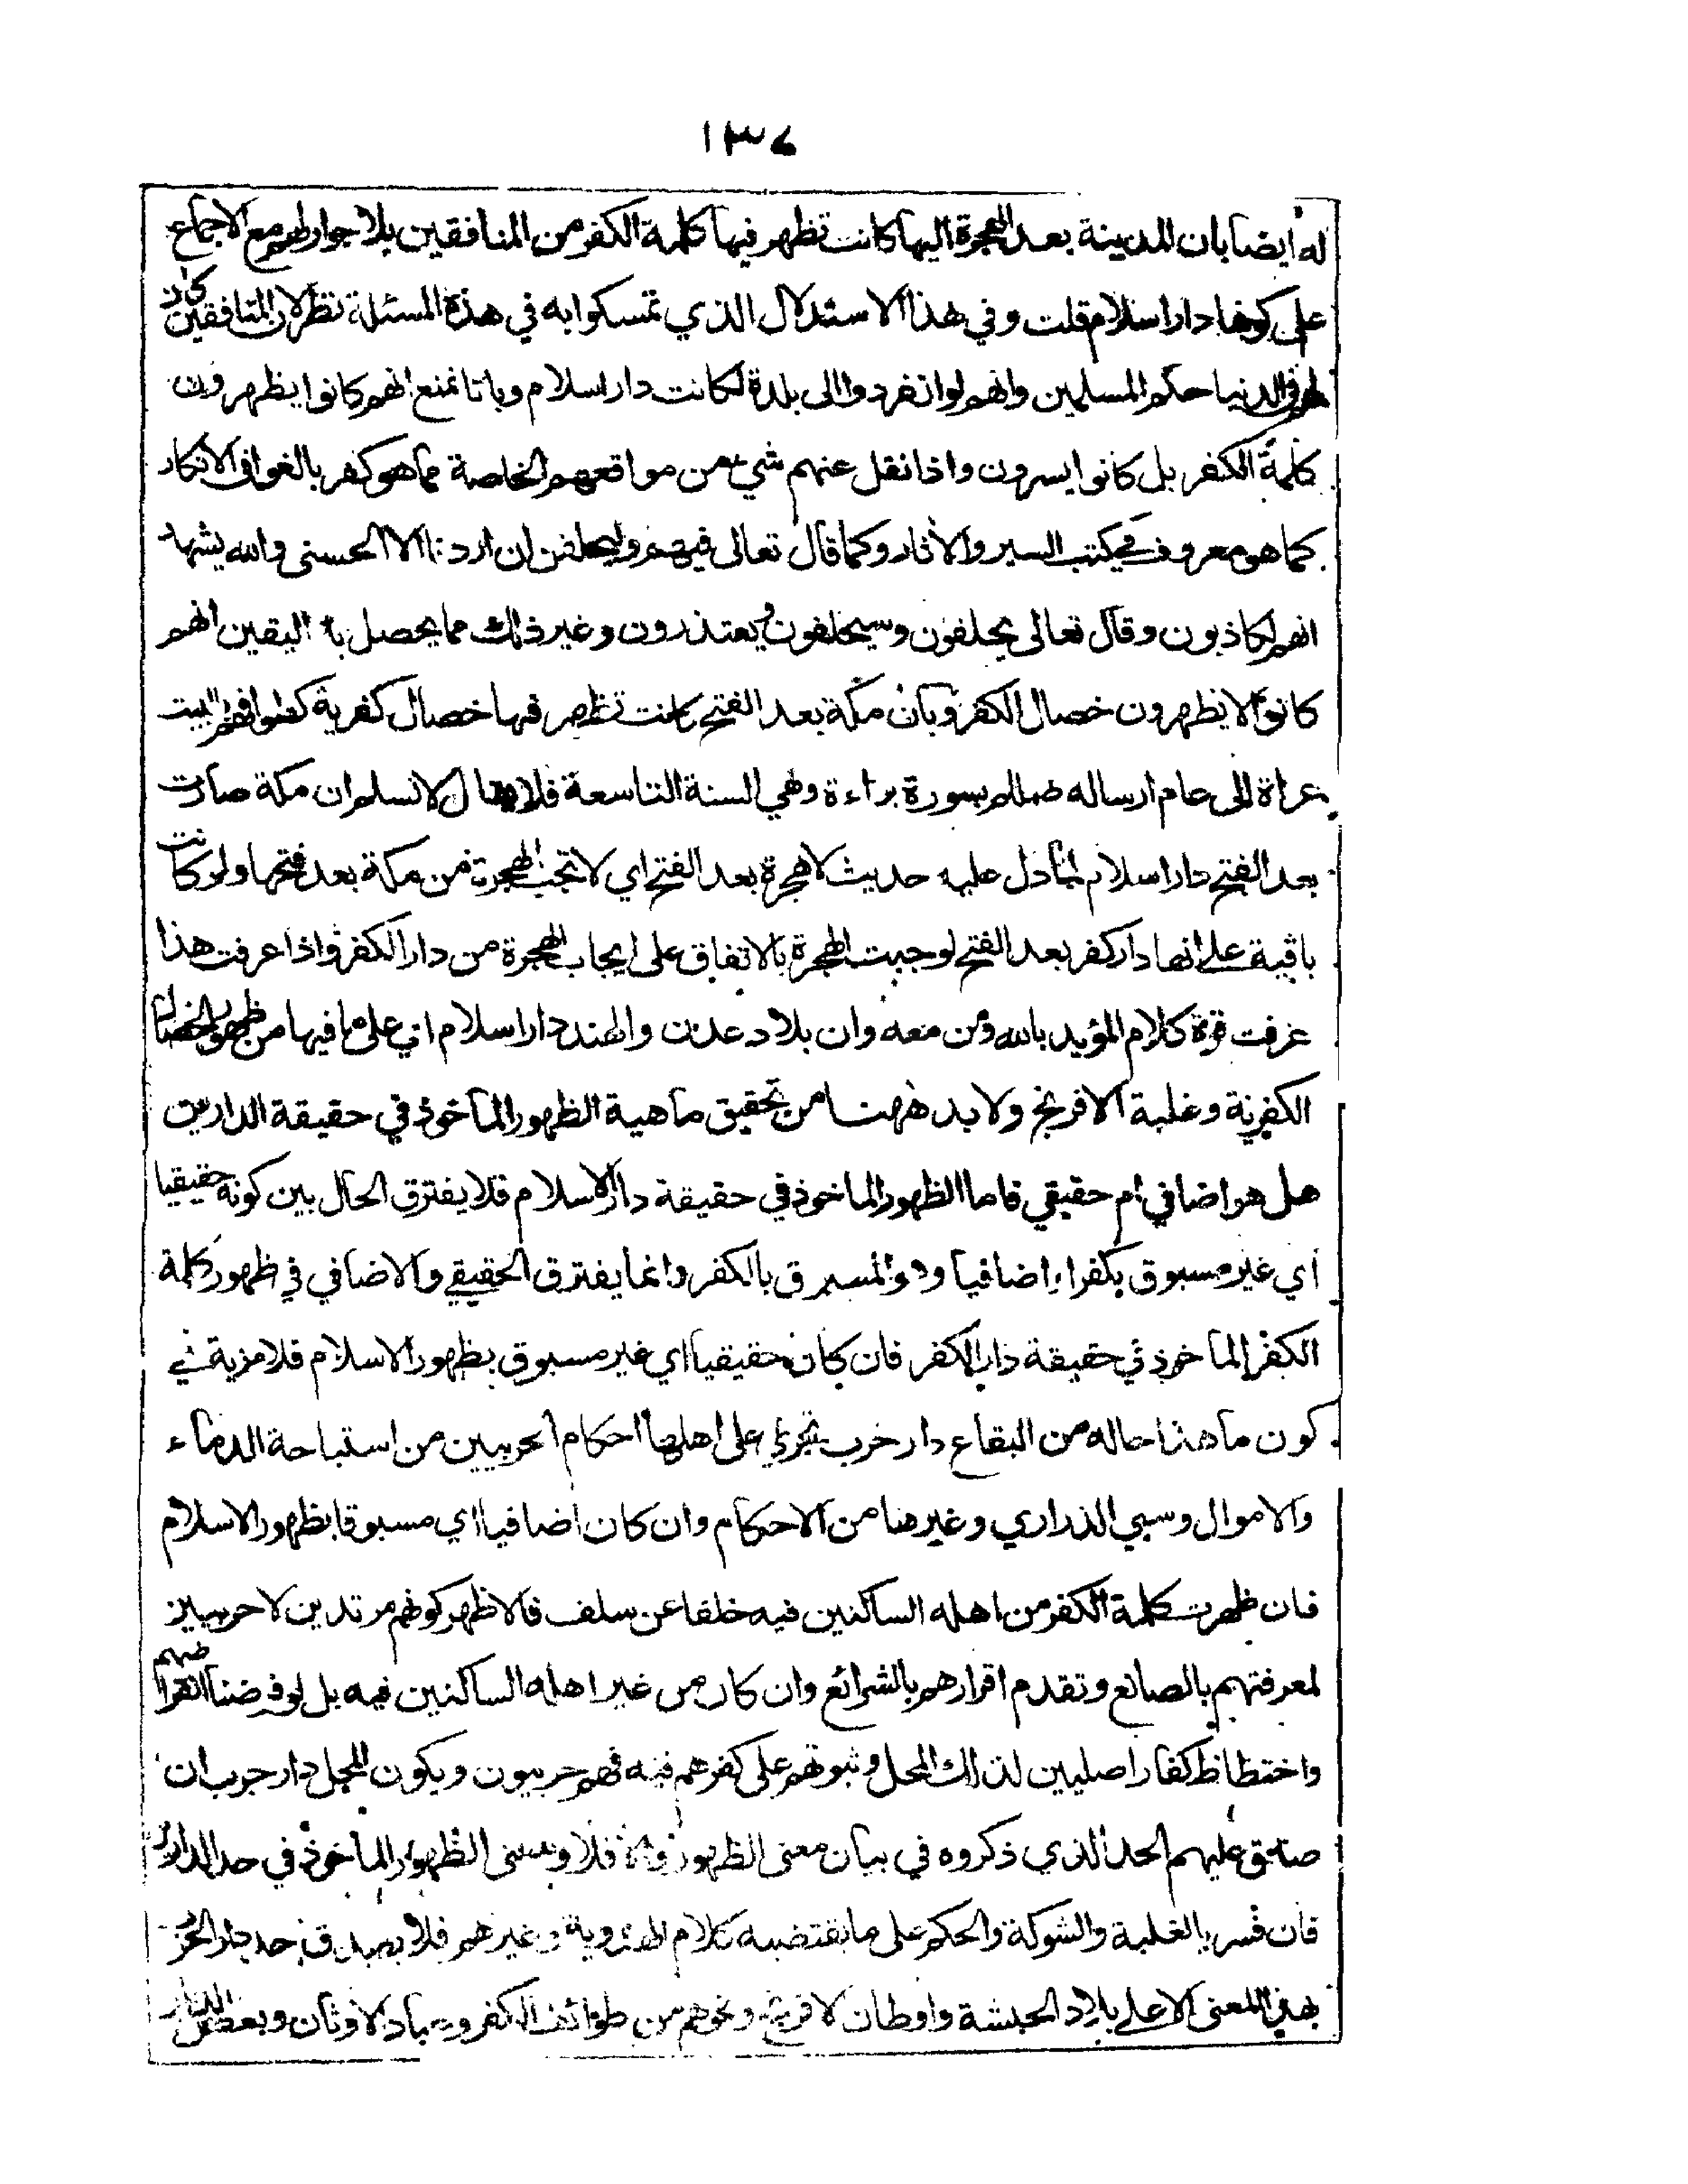 ١٣٤
له ايضا بان المدينة بعد الهجرة اليها كانت تظهر فيها كلمة الكفر من المنافقين بلا جوار لهم مع الاجماع
على كونها دار اسلام قلت وفي هذا الاستدلال الذي تمسكوا به في هذه المسئلة نظر لان المنافقين كان
لهم في الدنيا حكم المسلمين وانهم لو انفردوا الى بلدة لكانت دار اسلام وبانا نمنع انهم كانوا يظهرون
كلمة الكفر بل كانوا يسرون واذا نقل عنهم شيء من مواقعهم الخاصة مما هو كفر بالغوا في الانكار
كما هو معروف في كتب السير والاثار وكما قال تعالى فيهم وليحلفن ان اردنا الا الحسنى والله يشهد
انهم لكاذبون وقال تعالى يحلفون وسيحلفون ويعتذرون وغير ذلك مما يحصل به اليقين انهم
كانوا لا يظهرون خصال الكفر وبان مكة بعد الفتح كانت تظهر فيها خصال كفرية كطوافهم البيت
عراة الى عام ارساله صللم بسورة براءة وهي السنة التاسعة فلا يقال لا نسلم ان مكة صارت
بعد الفتح دار اسلام لما دل عليه حديث لا هجرة بعد الفتح اي لا تجب الهجرة من مكة بعد فتحها ولو كانت
باقية على انها دار كفر بعد الفتح لوجبت الهجرة بالاتفاق على ايجاب الهجرة من دار الكفر واذا عرفت هذا
عرفت قوة كلام المؤيد بالله ومن معه وان بلاد عدن والهند دار اسلام اي على ما فيها من ظهور الخصال
الكفرية وغلبة الافرنج ولا بد ههنا من تحقيق ماهية الظهور الماخوذ في حقيقة الدارين
هل هو اضافي ام حقيقي فاما الظهور الماخوذ في حقيقة دار الاسلام فلا يفترق الحال بين كونه حقيقيا
اي غير مسبوق بكفر او اضافيا وهو المسبوق بالكفر وانما يفترق الحقيقي والاضافي في ظهور كلمة
الكفر الماخوذ في حقيقة دار الكفر فان كان حقيقيا اي غير مسبوق بظهور الاسلام فلا مزية في
كون ما هذا حاله من البقاع دار حرب تجري على اهلها احكام الحربيين من استباحة الدماء
والاموال وسبي الذراري وغيرها من الاحكام وان كان اضافيا اي مسبوقا بظهور الاسلام
فان ظهرت كلمة الكفر من اهله الساكنين فيه خلفا عن سلف فالاظهر كونهم مرتدين لا حربيين
لمعرفتهم بالصانع وتقدم اقرارهم بالشرائع وان كان من غير اهله الساكنين فيه بل لو فرضنا انقراضهم
واختطاط كفار اصليين لذلك المحل وثبوتهم على كفرهم فيه فهم حربيون ويكون المحل دار حرب ان
صدق عليهم الحد الذي ذكروه في بيان معنى الظهور والا فلا ومعنى الظهور الماخوذ في حد الدار
فان فسر بالغلبة والشوكة والحكم على ما يقتضيه كلام وغيرهم فلا يصدق حد دار الحرب
بهذا المعنى الا على بلاد الحبشة واوطان الافرنج ونحوهم من طوائف الكفر وعباد الاوثان وبعض